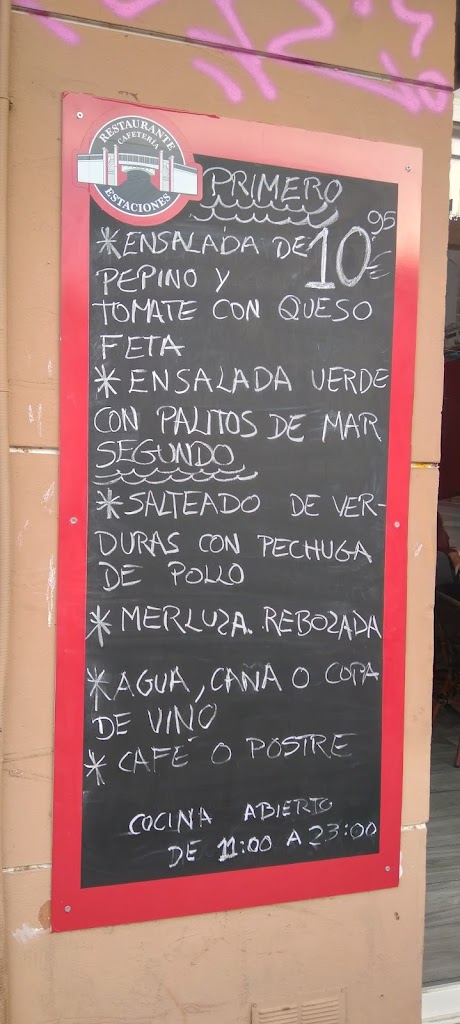 RESTAURANTE
CAFETERIA
ESTACIONES
PRIMERO
*ENSALADA DE 10,95 €
PEPINO Y
TOMATE CON QUESO
FETA
* ENSALADA VERDE
CON PALITOS DE MAR
SEGUNDO
*SALTEADO DE VER-
DURAS CON PECHUGA
DE POLLO
* MERLUSA REBOZADA
*AGUA, CANA O COPA
DE VINO
* CAFÉ O POSTRE
COCINA ABIERTO
DE 11:00 A 23:00